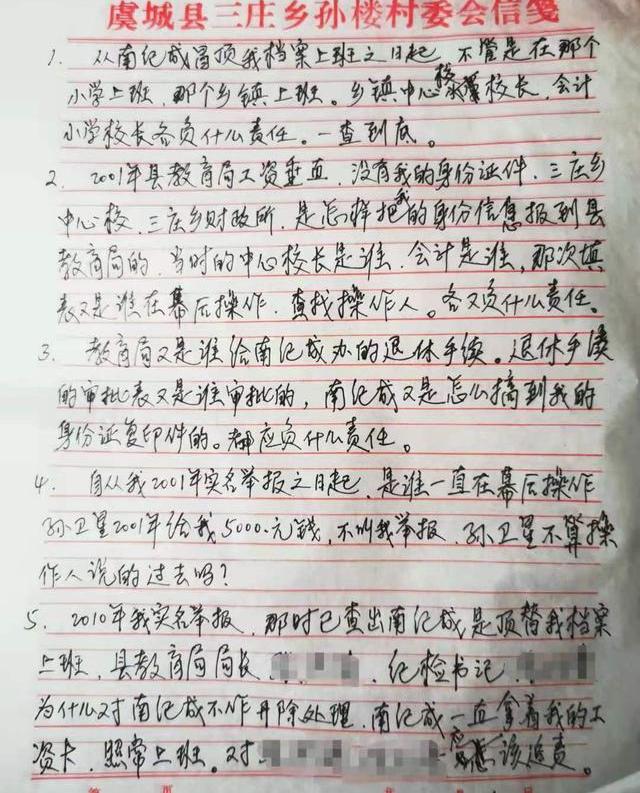 虞城县三庄乡孙楼村委会信笺
1. 从南纪成冒顶我档案上班之日起,不管是在那个
小学上班,那个乡镇上班。乡镇中心校校长,会计
小学校长各负什么责任。一查到底。
2. 2001年县教育局工资垂直,没有我的身份证件,三庄乡
中心校、三庄乡财政所,是怎样把我的身份信息报到县
教育局的,当时的中心校长是谁,会计是谁,那次填
表又是谁在幕后操作,查找操作人。各又负什么责任。
3. 教育局又是谁给南纪成办的退休手续。退休手续
的审批表又是谁审批的,南纪成又是怎么搞到我的
身份证复印件的。都应负什么责任。
4. 自从我2001年实名举报之日起,是谁一直在幕后操作
孙卫星2001年给我5000.元钱,不叫我举报,孙卫星不算操
作人说的过去吗?
5. 2010年我实名举报,那时已查出南纪成是顶替我档案
上班,县教育局局长 纪检书记
为什么对南纪成不作开除处理,南纪成一直拿着我的工
资卡,照常上班。对 应该追责。
第 页